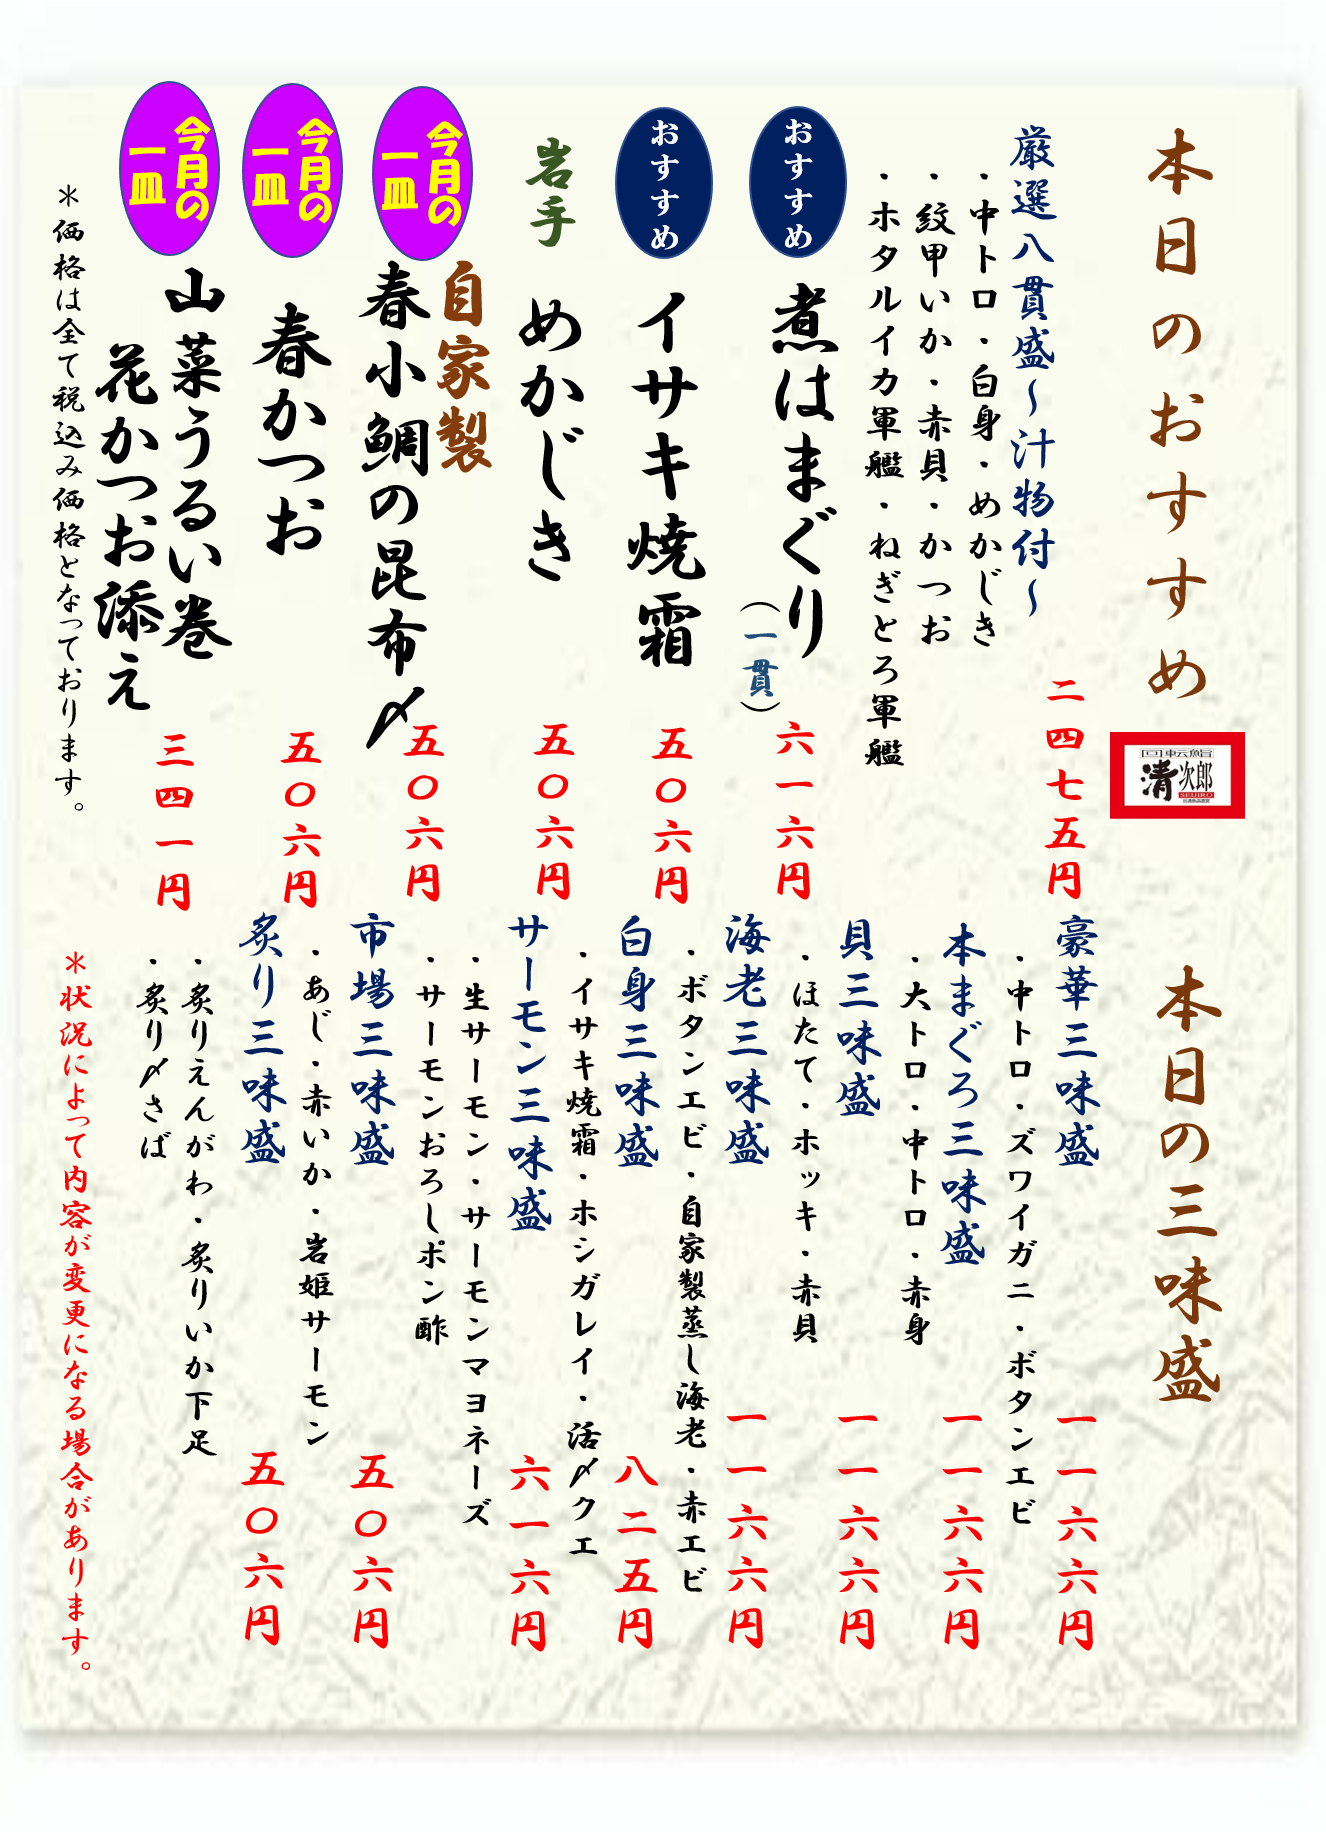 本日のおすすめ
回転鮨
清次郎
SEIJIRO
厳選八貫盛～汁物付～
二四七五円
・中トロ・白身・めかじき
・紋甲いか・赤貝・かつお
・ホタルイカ軍艦・ねぎとろ軍艦
おすすめ
煮はまぐり
（一貫）
六一六円
おすすめ
イサキ焼霜
五〇六円
岩手
めかじき
五〇六円
今月の
一皿
自家製
春小鯛の昆布〆
五〇六円
今月の
一皿
春かつお
五〇六円
今月の
一皿
山菜うるい巻
花かつお添え
三四一円
＊価格は全て税込み価格となっております。
本日の三味盛
豪華三味盛
一一六六円
・中トロ・ズワイガニ・ボタンエビ
本まぐろ三味盛
一一六六円
・大トロ・中トロ・赤身
貝三味盛
一一六六円
・ほたて・ホッキ・赤貝
海老三味盛
一一六六円
・ボタンエビ・自家製蒸し海老・赤エビ
白身三味盛
八二五円
・イサキ焼霜・ホシガレイ・活〆クエ
サーモン三味盛
六一六円
・生サーモン・サーモンマヨネーズ
・サーモンおろしポン酢
市場三味盛
五〇六円
・あじ・赤いか・岩姫サーモン
炙り三味盛
五〇六円
・炙りえんがわ・炙りいか下足
・炙り〆さば
＊状況によって内容が変更になる場合があります。